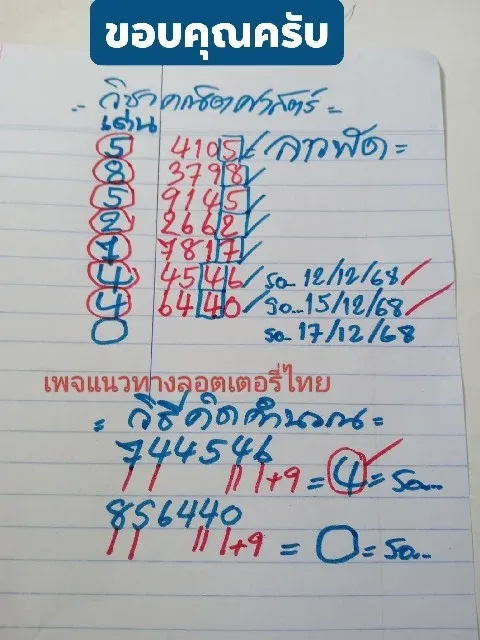 ขอบคุณครับ
วิชาคณิตศาสตร์
เด่น
5 4105 ลาวพัด
8 3798
5 9145
2 2662
7 7817
4 4546 รอ... 12/12/68
4 6440 รอ... 15/12/68
0 รอ... 17/12/68
เพจแนวทางลอตเตอรี่ไทย
= วิธีคิดคำนวณ =
744546
11 11 1+9 = 4 = รอ...
856440
11 11 1+9 = 0 = รอ...